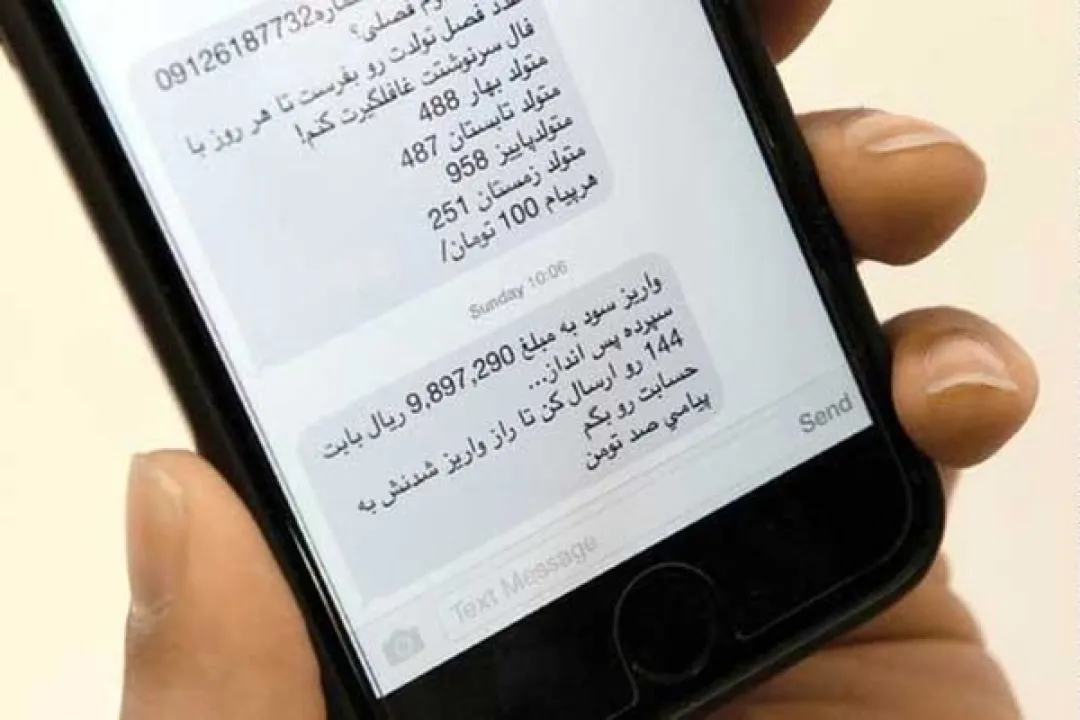 09126187732
فصلی؟
فصل تولدت رو بفرست تا هر روز با
فال سرنوشتت غافلگیرت کنم!
متولد بهار 488
متولد تابستان 487
متولدپاییز 958
متولد زمستان 251
هرپیام 100 تومان/
Sunday 10:06
واریز سود به مبلغ 9,897,290 ریال بابت
سپرده پس انداز...
144 رو ارسال کن تا راز واریز شدنش به
حسابت رو بگم
پیامي صد تومن
Text Message
Send